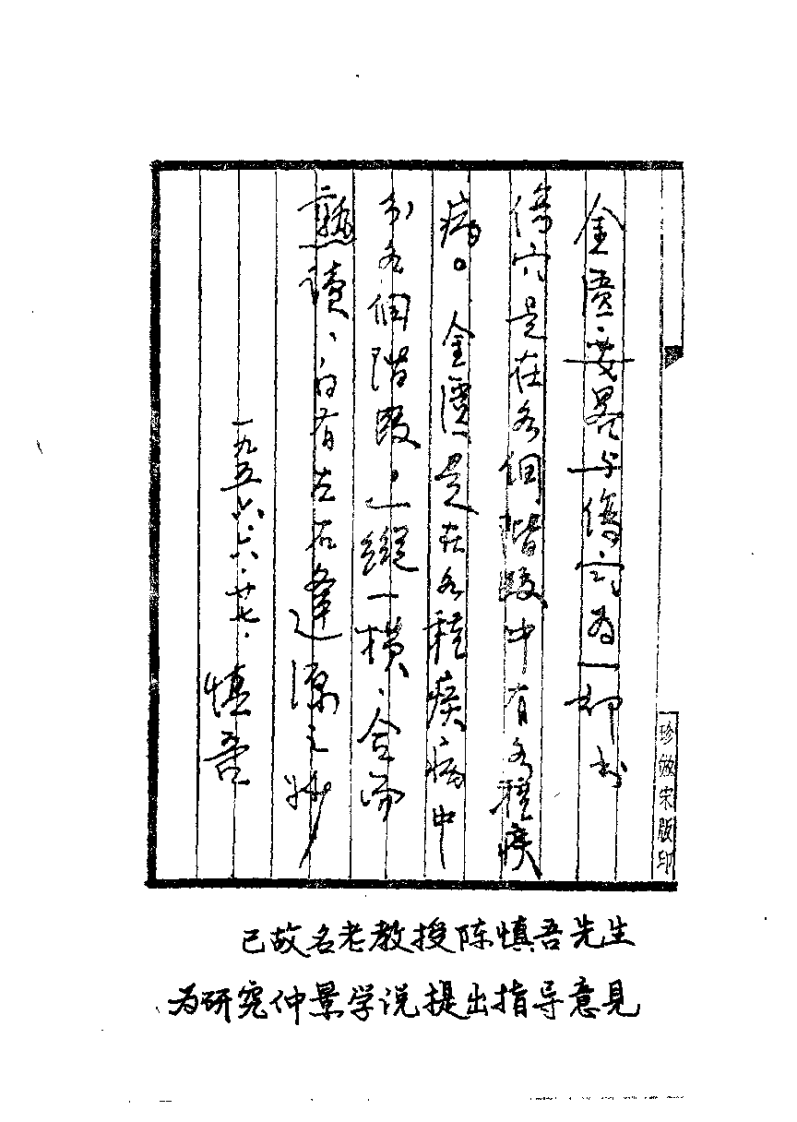 金匱要畧与傷寒为一部书
傷寒是在各個階段中有各種疾
病。金匱是在各種疾病中
分各個階段，一縱一横、合而
熟讀、自有左右逢源之妙
一九五六.六.廿七. 慎吾
珍倣宋版印
已故名老教授陈慎吾先生
为研究仲景学说提出指导意见